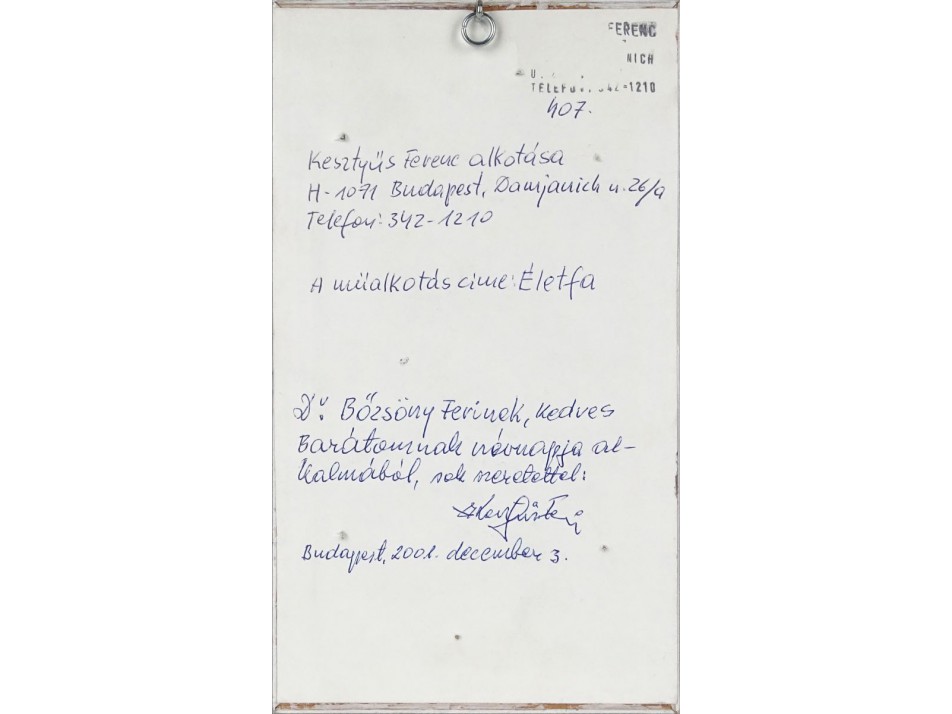 FERENC
NICH
U.
1210
407.
Kesztyűs Ferenc alkotása
H-1071 Budapest, Damjanich u. 26/a
Telefon: 342-1210
A műalkotás címe: Életfa
Dr. Bőzsöny Ferinek, kedves
Barátomnak névnapja al-
kalmából, sok szeretettel:
Budapest, 2001. december 3.